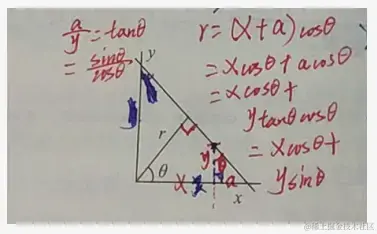 a/y = tanθ
= sinθ/cosθ
r = (x+a)cosθ
= xcosθ + acosθ
= xcosθ +
ytanθcosθ
= xcosθ +
ysinθ
y
r
θ
x
y
θ
a
x
@稀土掘金技术社区